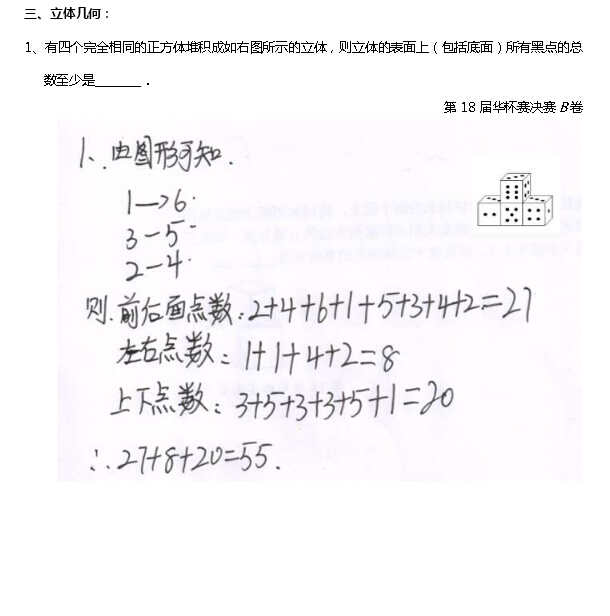 三、立体几何：
1、有四个完全相同的正方体堆积成如右图所示的立体，则立体的表面上（包括底面）所有黑点的总
数至少是______．
第 18 届华杯赛决赛 B 卷
1、由图形可知.
1→6.
3－5.
2－4.
则.前后面点数:2+4+6+1+5+3+4+2=27
左右点数：1+1+4+2=8
上下点数：3+5+3+3+5+1=20
∴27+8+20=55.